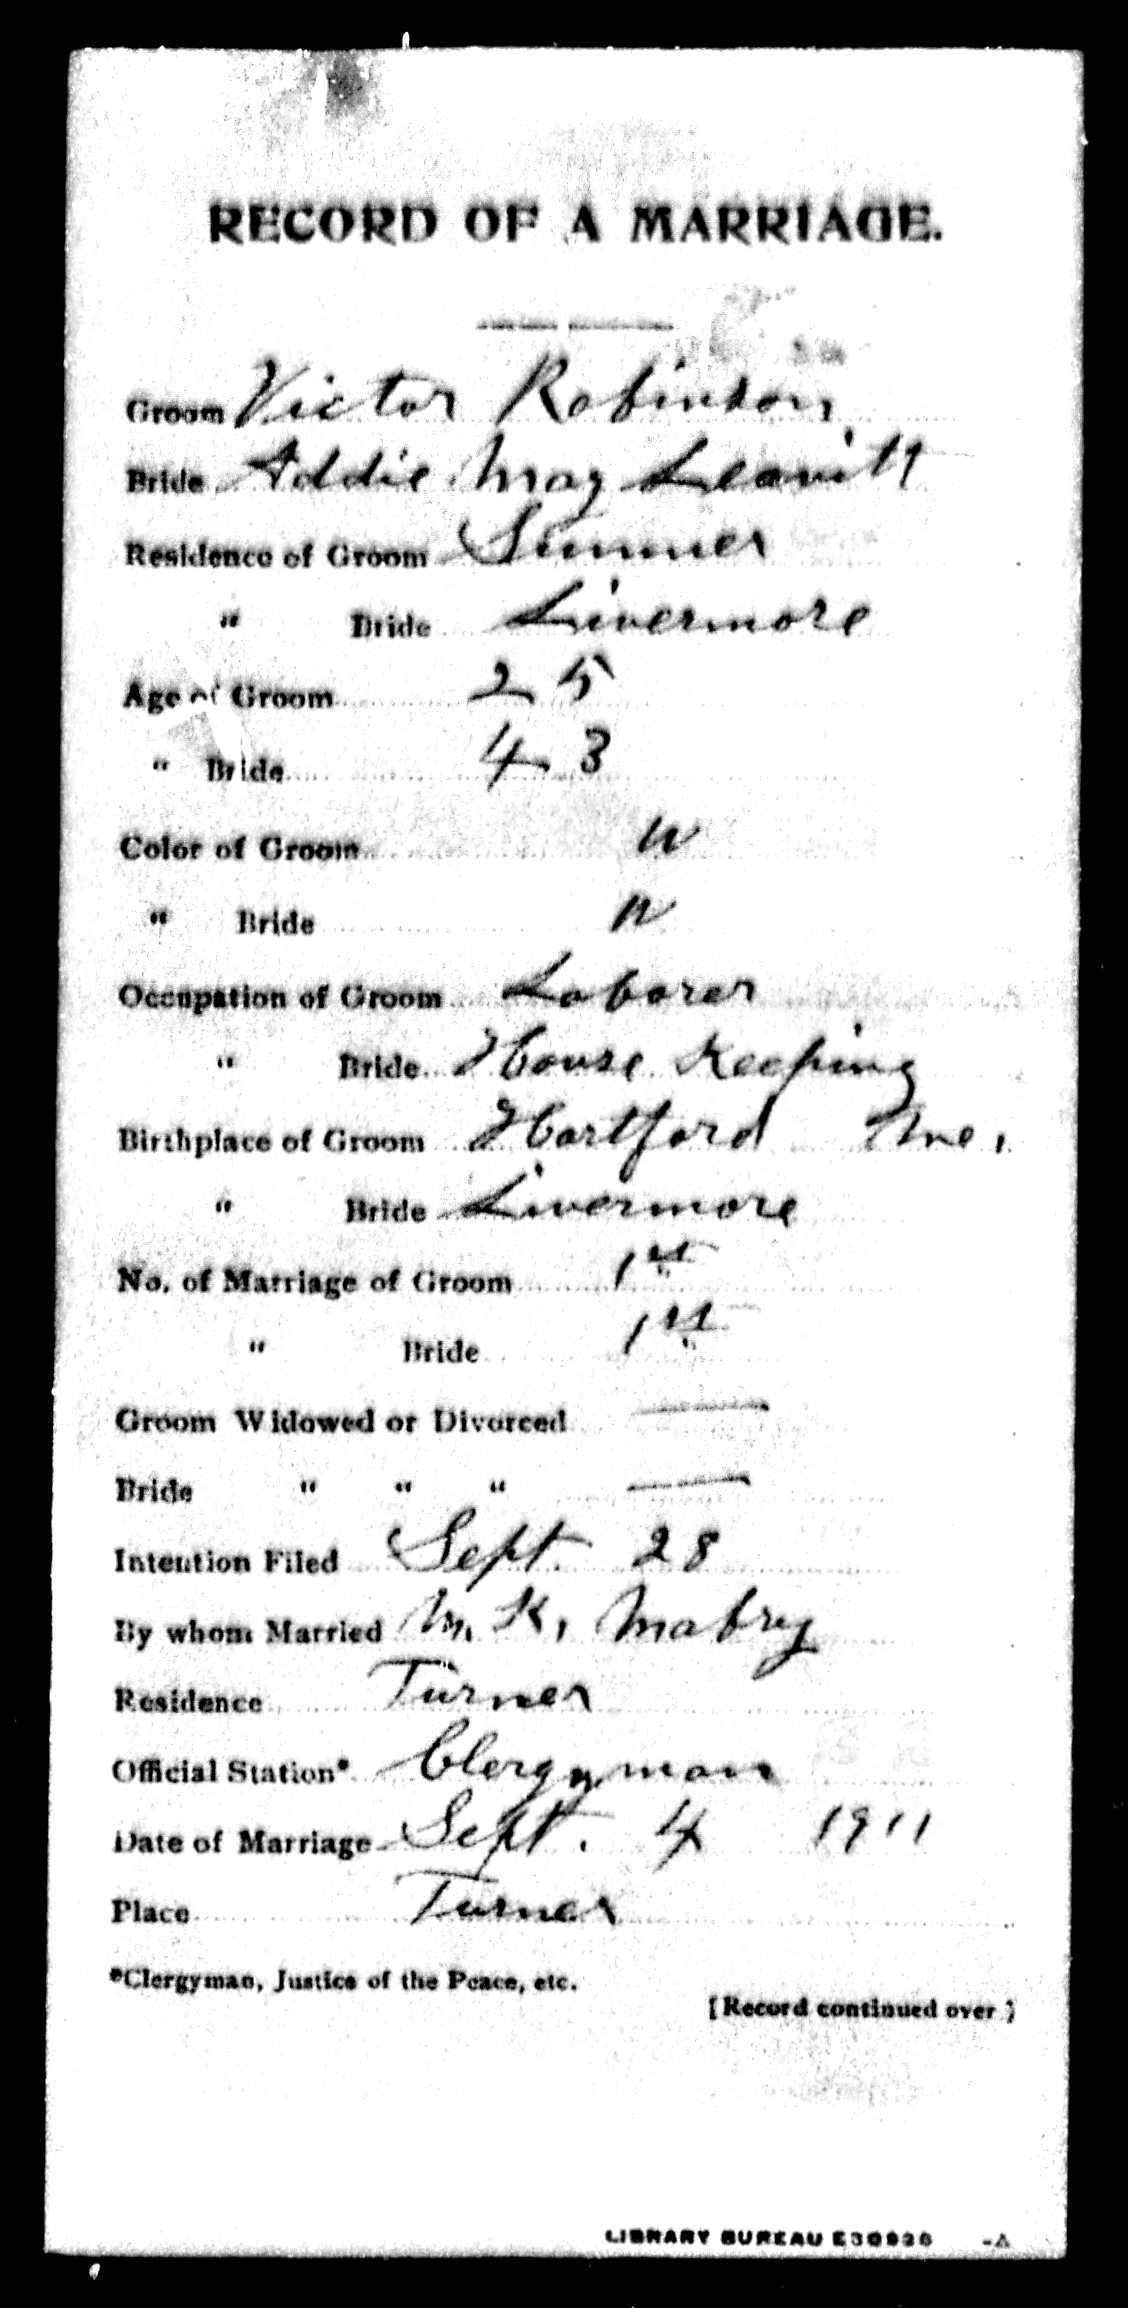 RECORD OF A MARRIAGE.
Groom Victor Robinson,
Bride Addie May Leavitt
Residence of Groom Sumner
" Bride Livermore
Age of Groom 25
" Bride 43
Color of Groom W
" Bride W
Occupation of Groom Laborer
" Bride House Keeping
Birthplace of Groom Hartford Me,
" Bride Livermore
No. of Marriage of Groom 1st
" Bride 1st
Groom Widowed or Divorced —
Bride " " " —
Intention Filed Sept. 28
By whom Married M. K. Mabry
Residence Turner
Official Station* Clergyman
Date of Marriage Sept. 4 1911
Place Turner
*Clergyman, Justice of the Peace, etc.
[Record continued over]
LIBRARY BUREAU E30926 -A